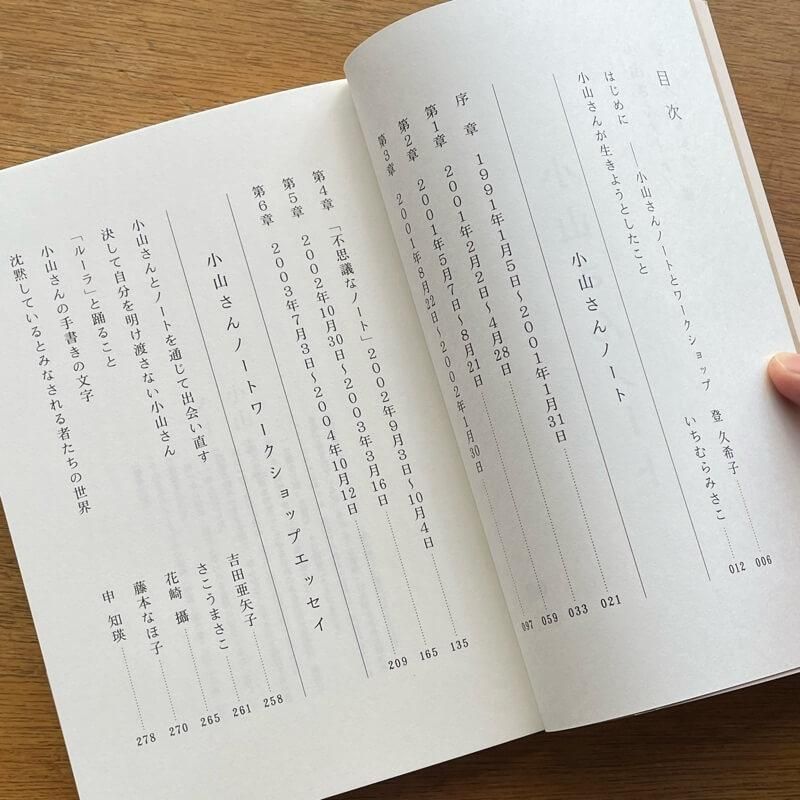 目次
はじめに ――小山さんノートとワークショップ 登 久希子 006
小山さんが生きようとしたこと いちむらみさこ 012
小山さんノート
序章 1991年1月5日〜2001年1月31日 021
第1章 2001年2月2日〜4月28日 033
第2章 2001年5月7日〜8月21日 059
第3章 2001年8月22日〜2002年1月30日 097
第4章 「不思議なノート」2002年9月3日〜10月4日 135
第5章 2002年10月30日〜2003年3月16日 165
第6章 2003年7月3日〜2004年10月12日 209
小山さんノートワークショップエッセイ
小山さんとノートを通じて出会い直す 吉田亜矢子 258
決して自分を明け渡さない小山さん さこうまさこ 261
「ルーラ」と踊ること 花崎 攝 265
小山さんの手書きの文字 藤本なほ子 270
沈黙しているとみなされる者たちの世界 申 知瑛 278